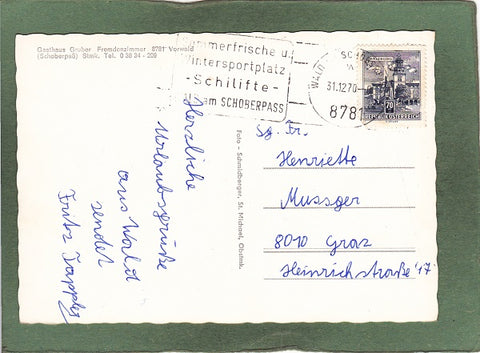 Gasthaus Gruber Fremdenzimmer 8781 Vorwald
(Schoberpaß) Stmk. Tel. 0 38 34 - 209
Sommerfrische u.
Wintersportplatz
-Schilifte-
am SCHOBERPASS
WALD
31.12.70
8781
70
REPUBLIK ÖSTERREICH
Herzliche
Urlaubsgrüße
aus Wald
sendet
Fritz
Foto - Schmidberger, St. Michael, Obstmk.
Sg. Fr.
Henriette
Mussger
8010 Graz
Heinrichstraße 17